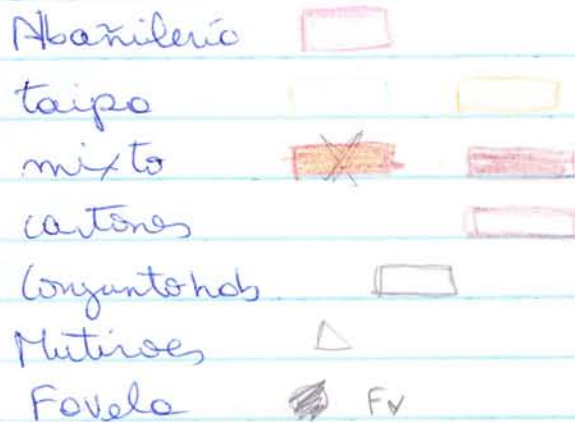 Albañilerío
taipa
mixto
cartones
Conjunto hab
Mutiroes
Favela Fv